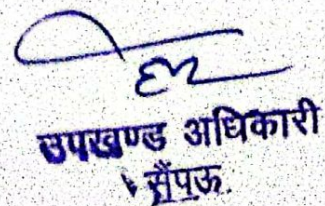 उपखण्ड अधिकारी
सैंपऊ